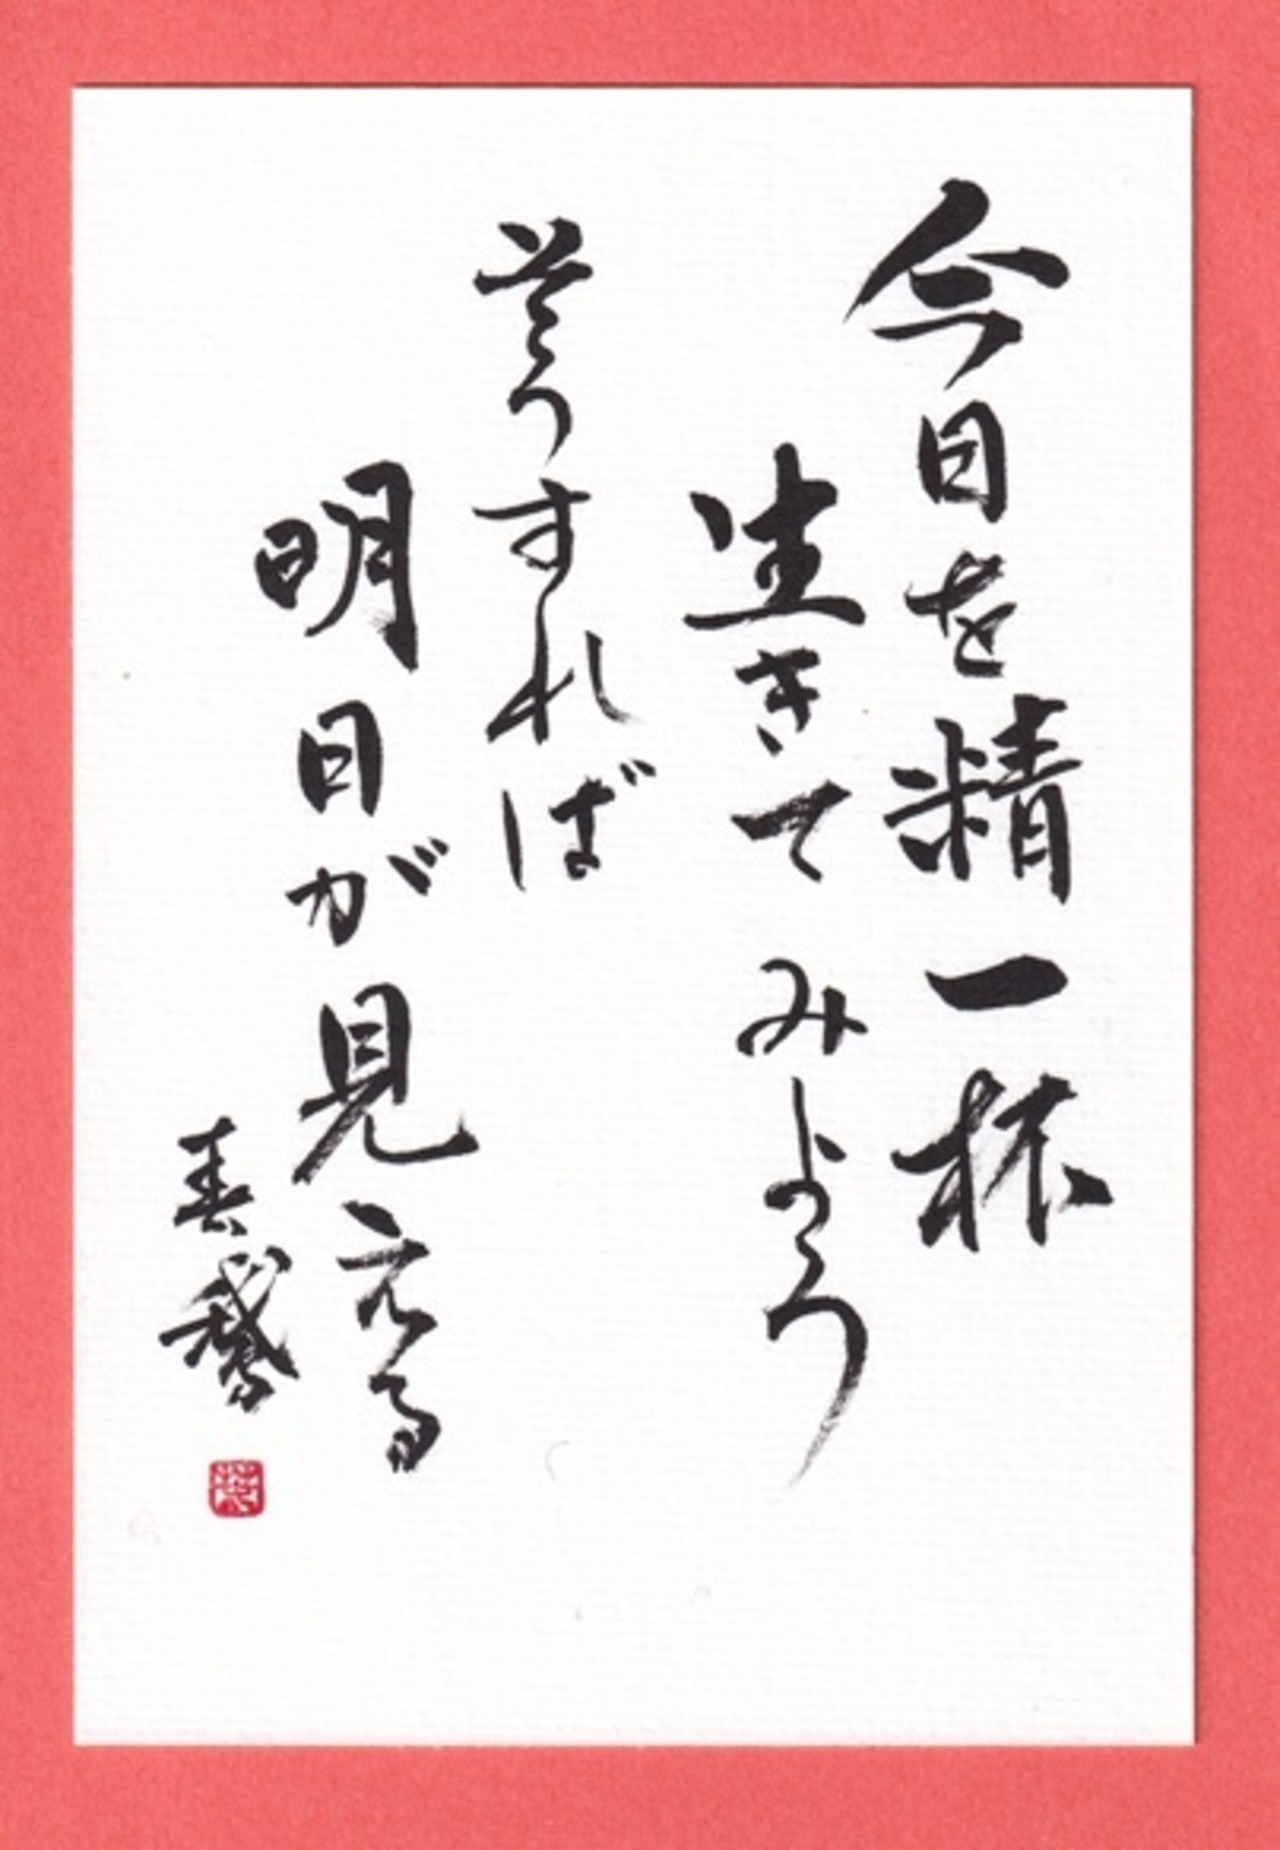 今日を精一杯
生きてみよう

そうすれば
明日が見える
春鵞